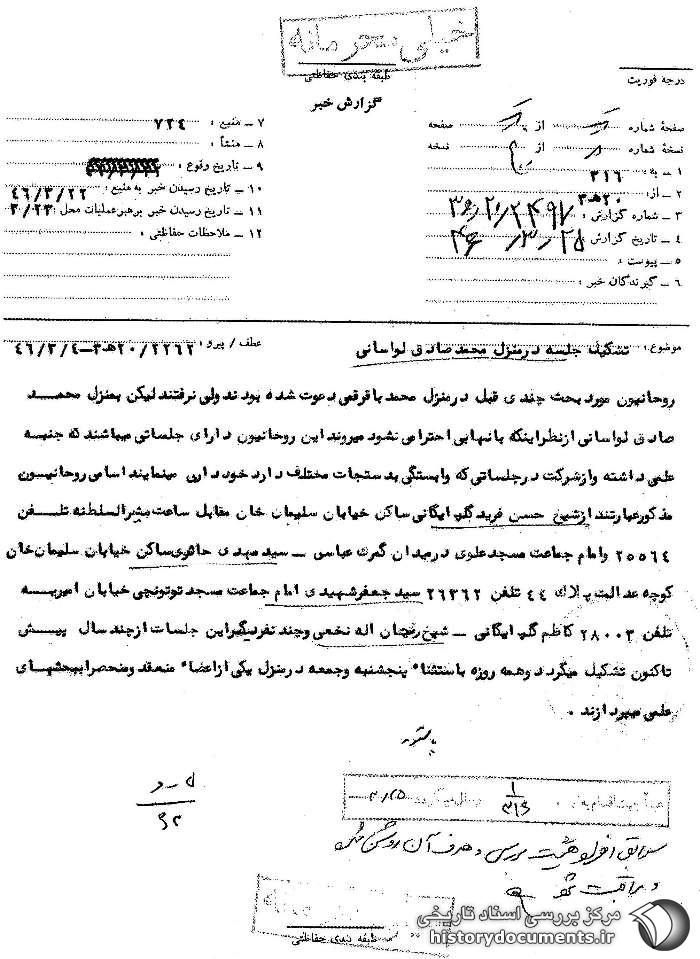 خیلی محرمانه
طبقه بندی حفاظتی
درجه فوریت
گزارش خبر
صفحهٔ شماره از صفحه
نسخهٔ شماره از نسخه
۱ ـ به : ۳۱۶
۲ ـ از : ۲۰هـ۳
۳ ـ شماره گزارش :
۴ ـ تاریخ گزارش : ۴۶/۳/۲۵
۵ ـ پیوست :
۶ ـ گیرندگان خبر :
۷ ـ منبع : ۷۲۴
۸ ـ منشأ :
۹ ـ تاریخ وقوع :
۱۰ ـ تاریخ رسیدن خبر به منبع : ۴۶/۳/۲۲
۱۱ ـ تاریخ رسیدن خبر برهبر عملیات محل : ۳/۲۳
۱۲ ـ ملاحظات حفاظتی :
موضوع : تشکیل جلسه در منزل محمد صادق لواسانی
عطف / پیرو : ۲۰/۲۲۶۲هـ۳ـ۴۶/۳/۴
روحانیون مورد بحث چندی قبل در منزل محمد باقر قمی دعوت شده بودند ولی نرفتند لیکن بمنزل محمد
صادق لواسانی از نظر اینکه بانهابی احترامی نشود میروند این روحانیون دارای جلساتی میباشند که جنبه
علمی داشته و از شرکت در جلساتی که وابستگی بدستجات مختلف دارد خودداری مینمایند اسامی روحانیون
مذکور عبارتند از شیخ حسن فرید گلپایگانی ساکن خیابان سلیمان خان مقابل ساعت مشیرالسلطنه تلفن
۲۵۵۶۴ و امام جماعت مسجد علوی در میدان گمرک عباسی ـ سید مهدی حائری ساکن خیابان سلیمان خان
کوچه عدالت پلاک ۴۴ تلفن ۲۶۳۶۲ سید جعفر شهیدی امام جماعت مسجد توتونچی خیابان امیریه
تلفن ۲۸۰۰۳ کاظم گلپایگانی ـ شیخ اله نخعی و چند نفر دیگر این جلسات از چند سال پیش
تاکنون تشکیل میگردد و همه روزه باستثناء پنجشنبه و جمعه در منزل یکی از اعضاء منعقد و منحصرا ببحثهای
علمی میپردازند .
۳۱۶
۳/۲۵
سوابق افراد هیئت بررسی و هدف آن روشن
و مراقبت شود
طبقه بندی حفاظتی
مرکز بررسی اسناد تاریخی
historydocuments.ir